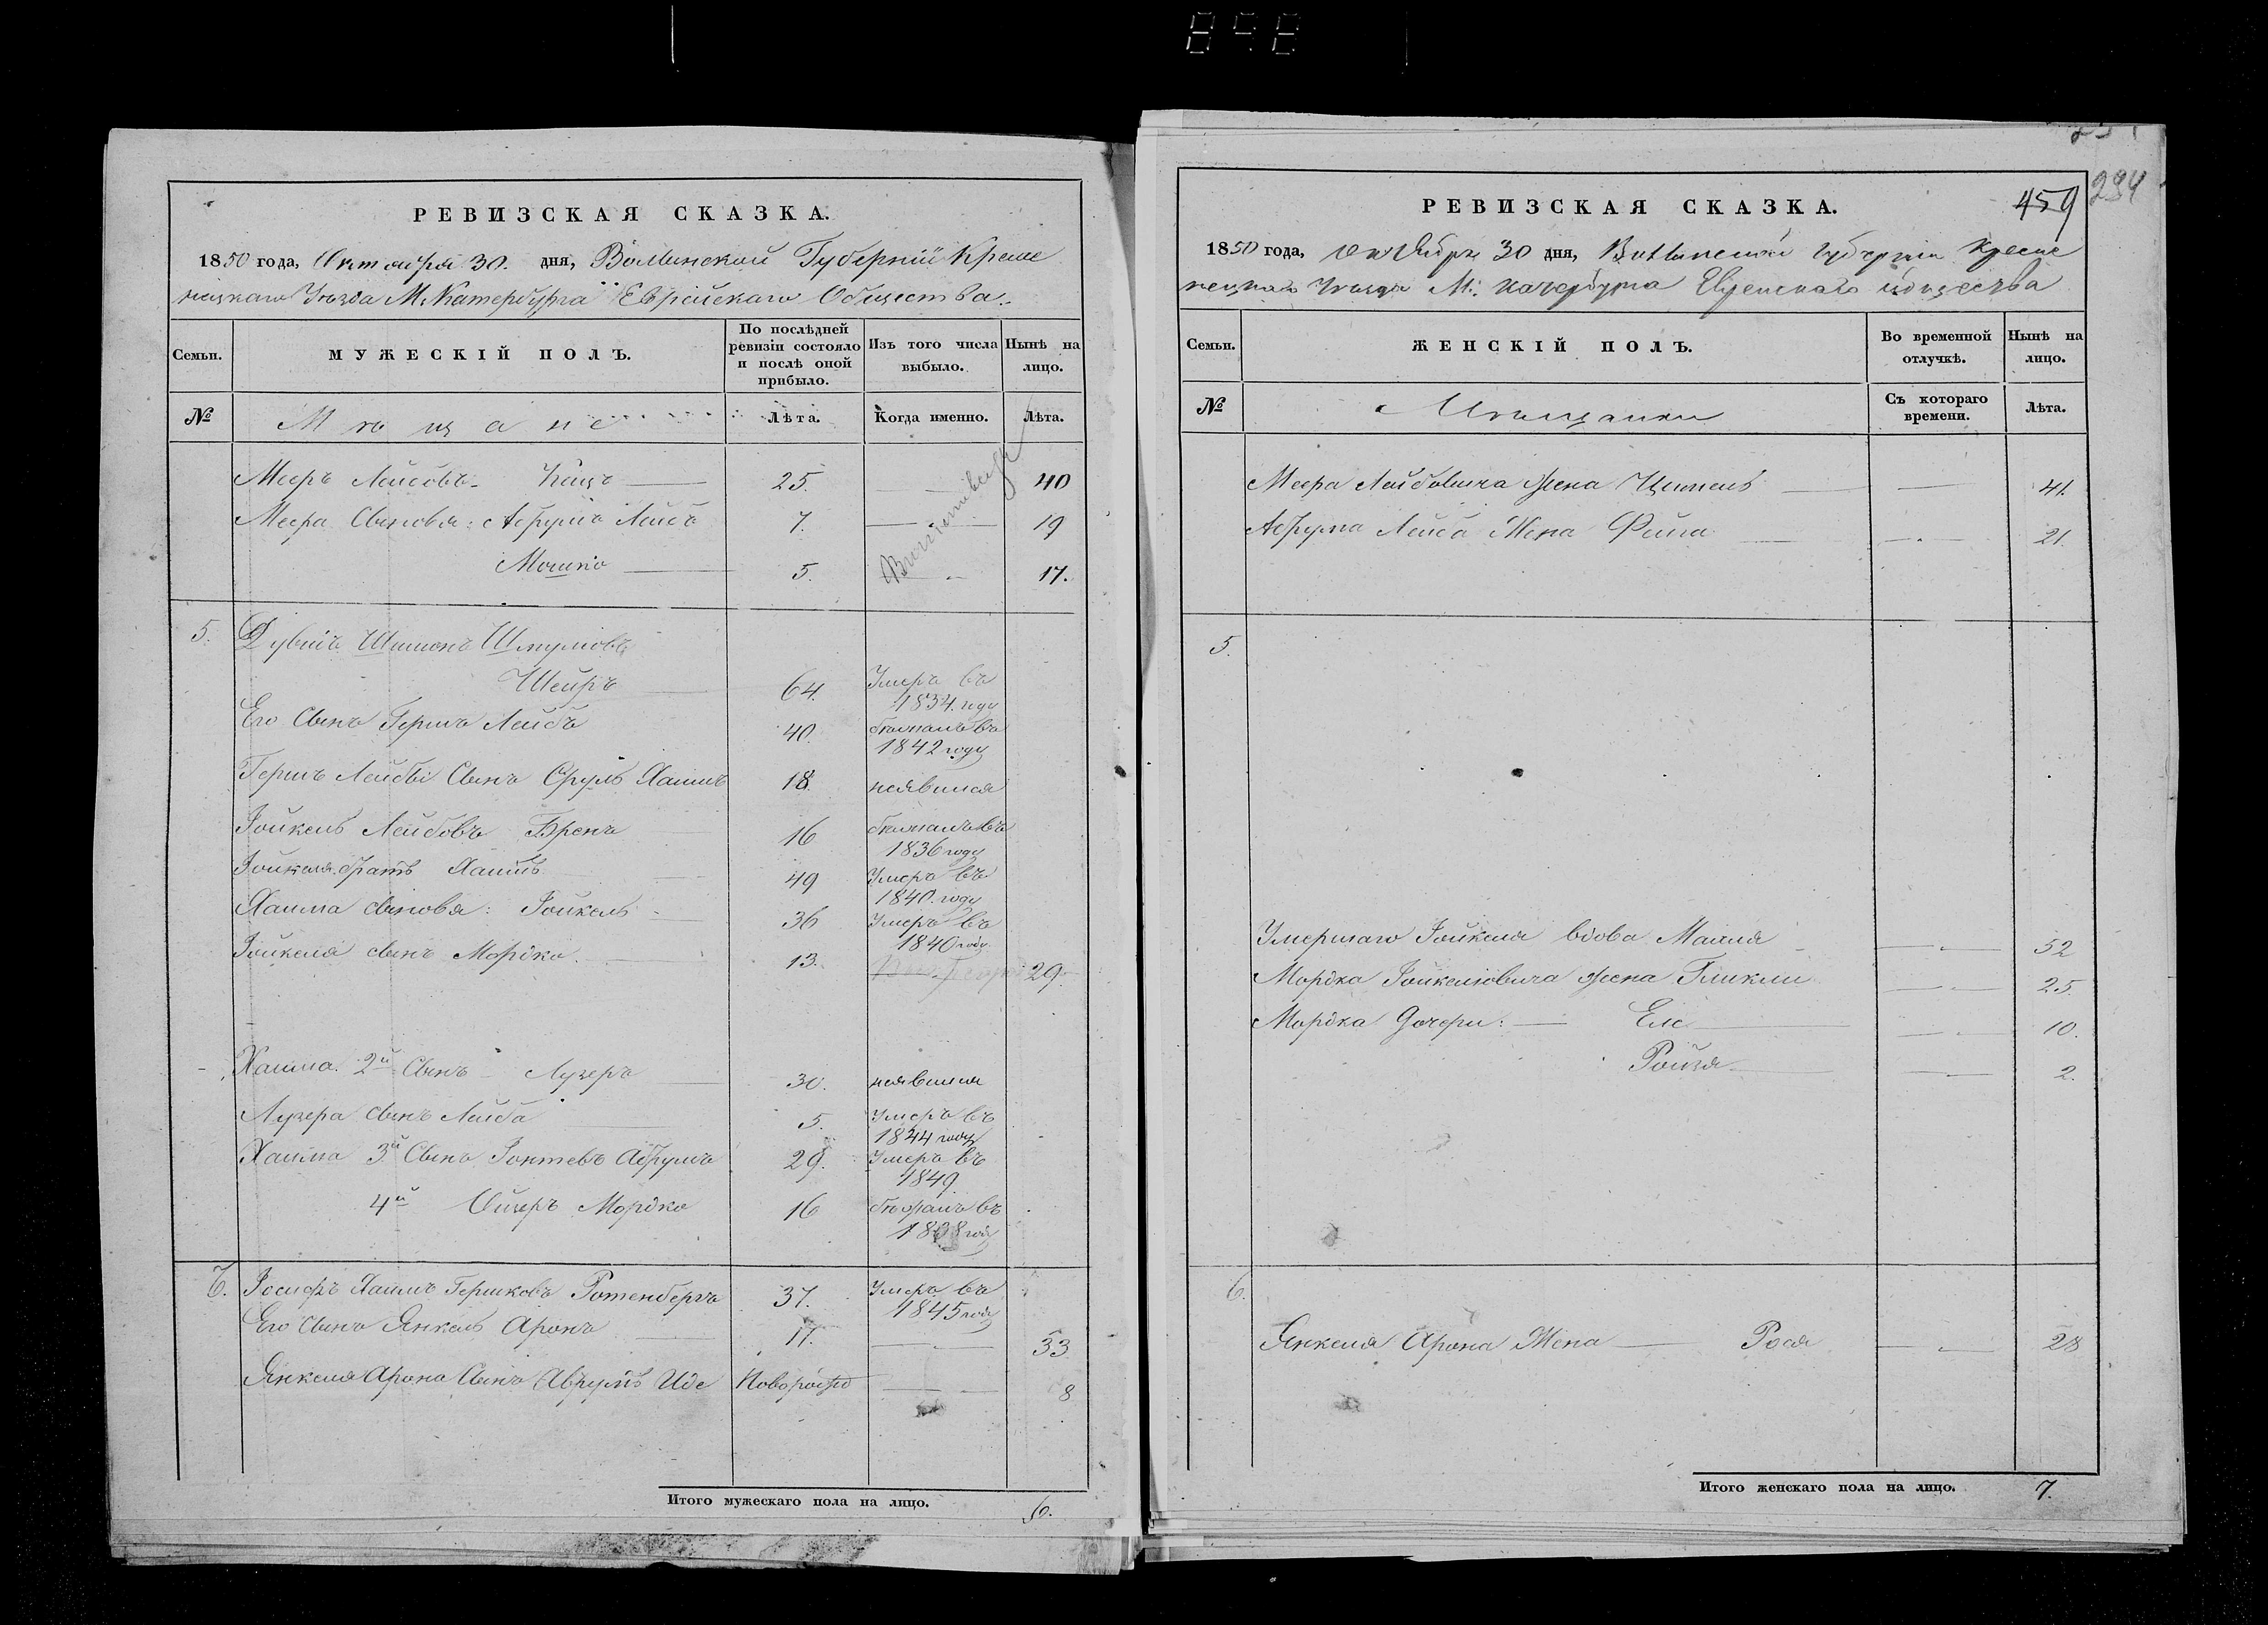 898
РЕВИЗСКАЯ СКАЗКА.
1850 года, Октября 30. дня, Волынской Губерніи Креме
нецкаго Уѣзда М. Катербурга Еврейскаго Общества.
Семьи.
МУЖЕСКІЙ ПОЛЪ.
По послѣдней ревизіи состояло и послѣ оной прибыло.
Изъ того числа выбыло.
Нынѣ на лицо.
№
Мѣщане
Лѣта.
Когда именно.
Лѣта.
Мееръ Лейбовъ 25. 40
Меера Сыновья: Абрумъ Лейбъ 7. 19
Мошко 5. 17.
5. Шимонъ Шмулиовъ
64. Умеръ въ 1834. году
Его Сынъ Гершъ Лейбъ 40. бѣжалъ въ 1842 году
Гершъ Лейбы Сынъ Сруль Хаимъ 18. неявился
Іойкель Лейбовъ 16 бѣжалъ въ 1836 году
Іойкеля братъ Хаимъ 49 Умеръ въ 1840. году
Хаима сыновья: Іойкель 36 Умеръ въ 1840 году
Іойкеля сынъ Мордко. 13. 29.
Хаима 2й Сынъ Лузеръ 30. неявился
Лузера сынъ Лейба 5. Умеръ въ 1844 году
Хаима 3й Сынъ Іонтевъ Абрумъ 29. Умеръ въ 1849
4й Ойзеръ Мордко 16 бѣжалъ въ 1838 году
6. Іосифъ Хаимъ Гершковъ Ротенбергъ 37. Умеръ въ 1845 году
Его Сынъ Янкель Аронъ 17. 33
Янкеля Арона Сынъ Аврумъ Иде Новорожд 8
Итого мужескаго пола на лицо. 6.
459
294
РЕВИЗСКАЯ СКАЗКА.
1850 года, Октября 30 дня, Волынской Губерніи Креме
нецкаго Уѣзда М. Катербурга Еврейскаго Общества
Семьи.
ЖЕНСКІЙ ПОЛЪ.
Во временной отлучкѣ.
Нынѣ на лицо.
№
Мѣщанки
Съ котораго времени.
Лѣта.
Меера Лейбовича жена 41.
Абрума Лейба Жена Фейга 21.
5.
Умершаго Іойкеля вдова Малля 52
Мордка Іойкелиовича жена Гликли 25.
Мордка Дочери: Еле 10.
Ройзя 2.
6.
Янкеля Арона Жена Рося 28
Итого женскаго пола на лицо. 7.